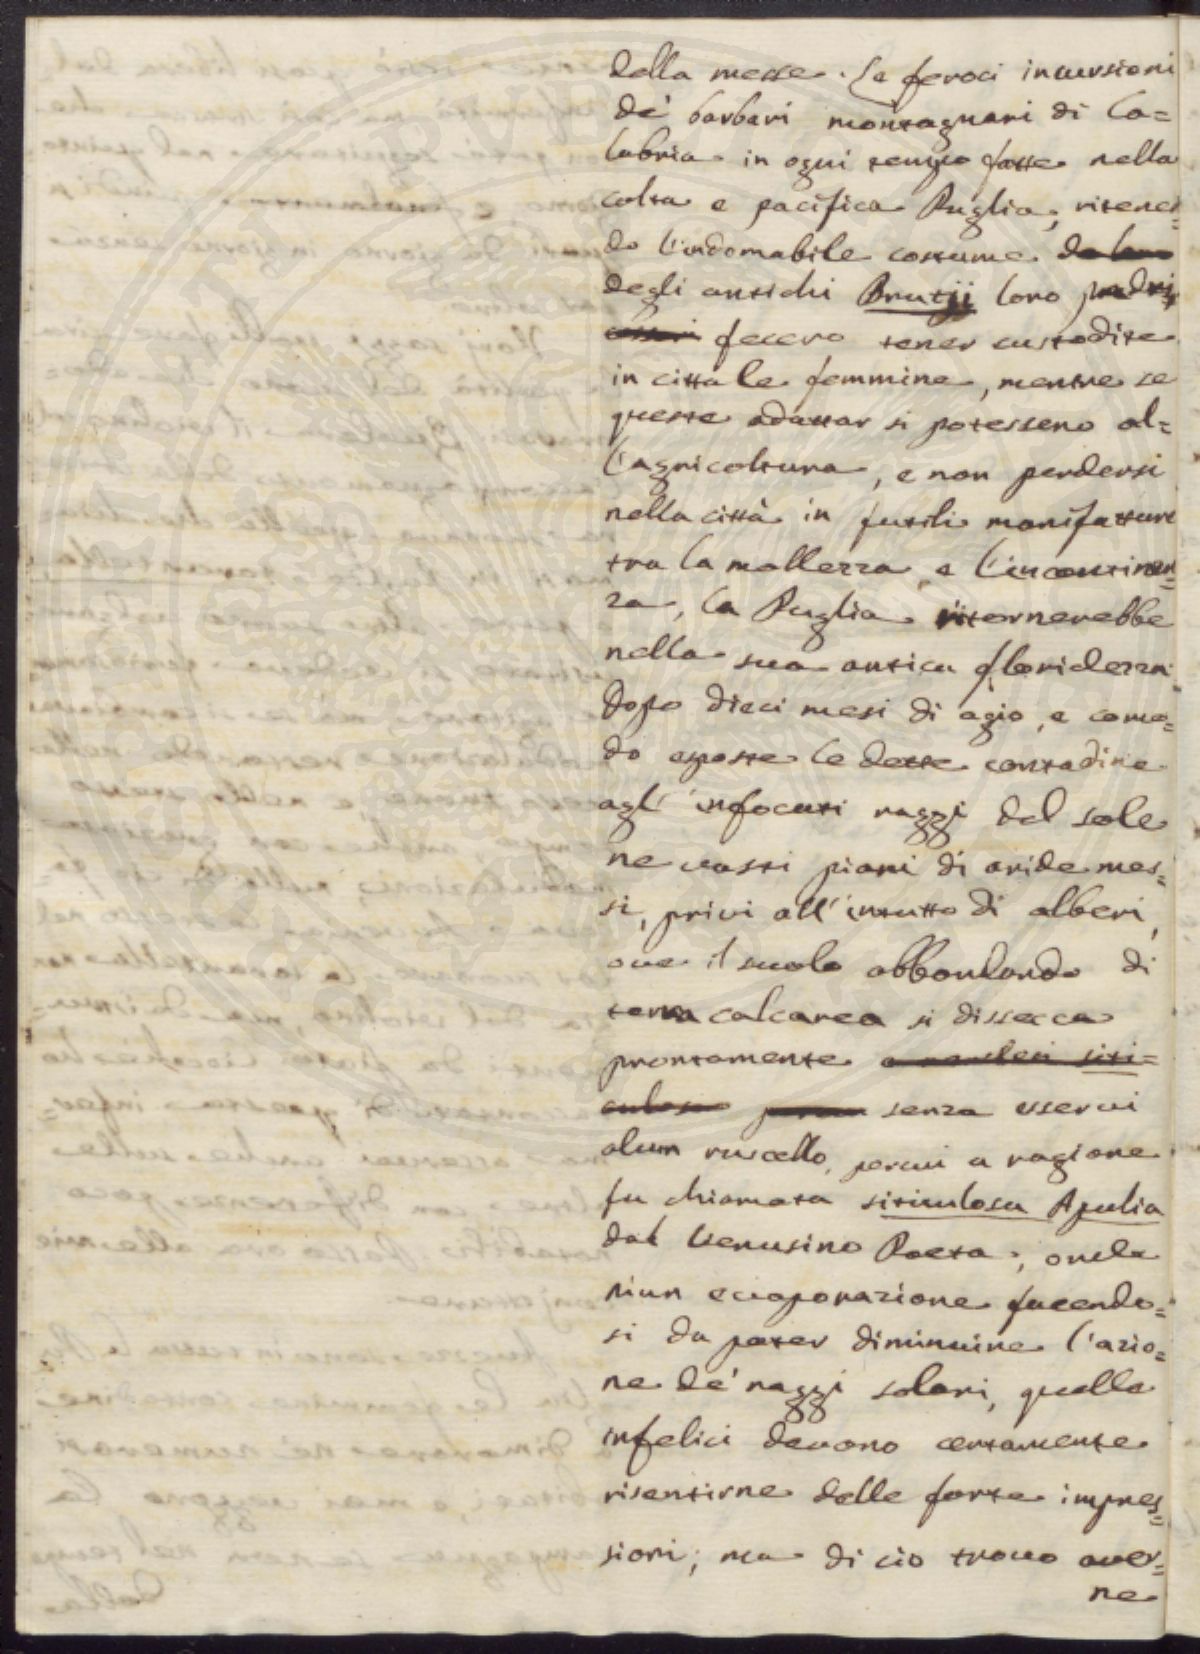 della messe. Le feroci incursioni
de' barbari montagnari di Ca=
labria in ogni tempo fatte nella
colta e pacifica Puglia, ritenen=
do l'indomabile costume
degli antichi Brutji loro padri,
fecero tener custodite
in citta le femmine, mentre se
queste adattar si potesseno al=
l'agricoltura, e non perdersi
nella città in futili manifatture
tra la mollezza, e l'incontinen=
za, la Puglia ritornerebbe
nella sua antica floridezza.
Dopo dieci mesi di agio, e como=
do esposte le dette contadine
agl'infocati raggi del sole
ne vasti piani di aride mes=
si, privi all'intutto di alberi,
ove il suolo abbondando di
terra calcarea si dissecca
prontamente
senza esservi
alcun ruscello, percui a ragione
fu chiamata siticulosa Apulia
dal Venusino Poeta; onde
niun evaporazione facendo=
si da poter diminuire l'azio=
ne de' raggi solari, quelle
infelici devono certamente
risentirne delle forte impres=
sioni; ma di cio trovo aver=
ne